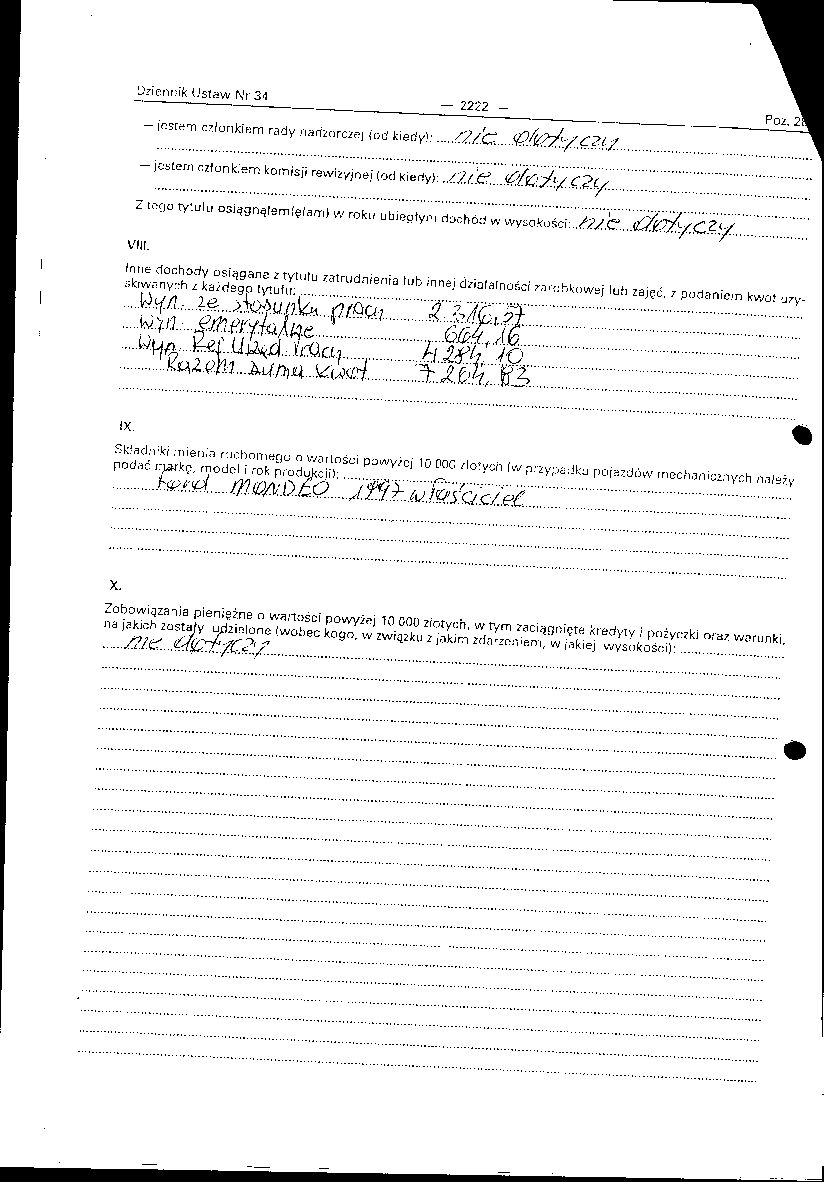 Dziennik Ustaw Nr 34
— 2222 —
Poz. 2
— jestem członkiem rady nadzorczej (od kiedy): nie dotyczy
— jestem członkiem komisji rewizyjnej (od kiedy): nie dotyczy
Z tego tytułu osiągnąłem(ęłam) w roku ubiegłym dochód w wysokości: nie dotyczy
VIII.
Inne dochody osiągane z tytułu zatrudnienia lub innej działalności zarobkowej lub zajęć, z podaniem kwot uzy-
skiwanych z każdego tytułu:
Wyn. ze stosunku pracy 2 316,57
Wyn. emerytalne 664,16
Wyn Rej Urzęd Pracy 4 284,10
Razem suma kwot 7 264,83
IX.
Składniki mienia ruchomego o wartości powyżej 10 000 złotych (w przypadku pojazdów mechanicznych należy
podać markę, model i rok produkcji):
Ford MONDEO 1997 właściciel
X.
Zobowiązania pieniężne o wartości powyżej 10 000 złotych, w tym zaciągnięte kredyty i pożyczki oraz warunki,
na jakich zostały udzielone (wobec kogo, w związku z jakim zdarzeniem, w jakiej wysokości):
nie dotyczy